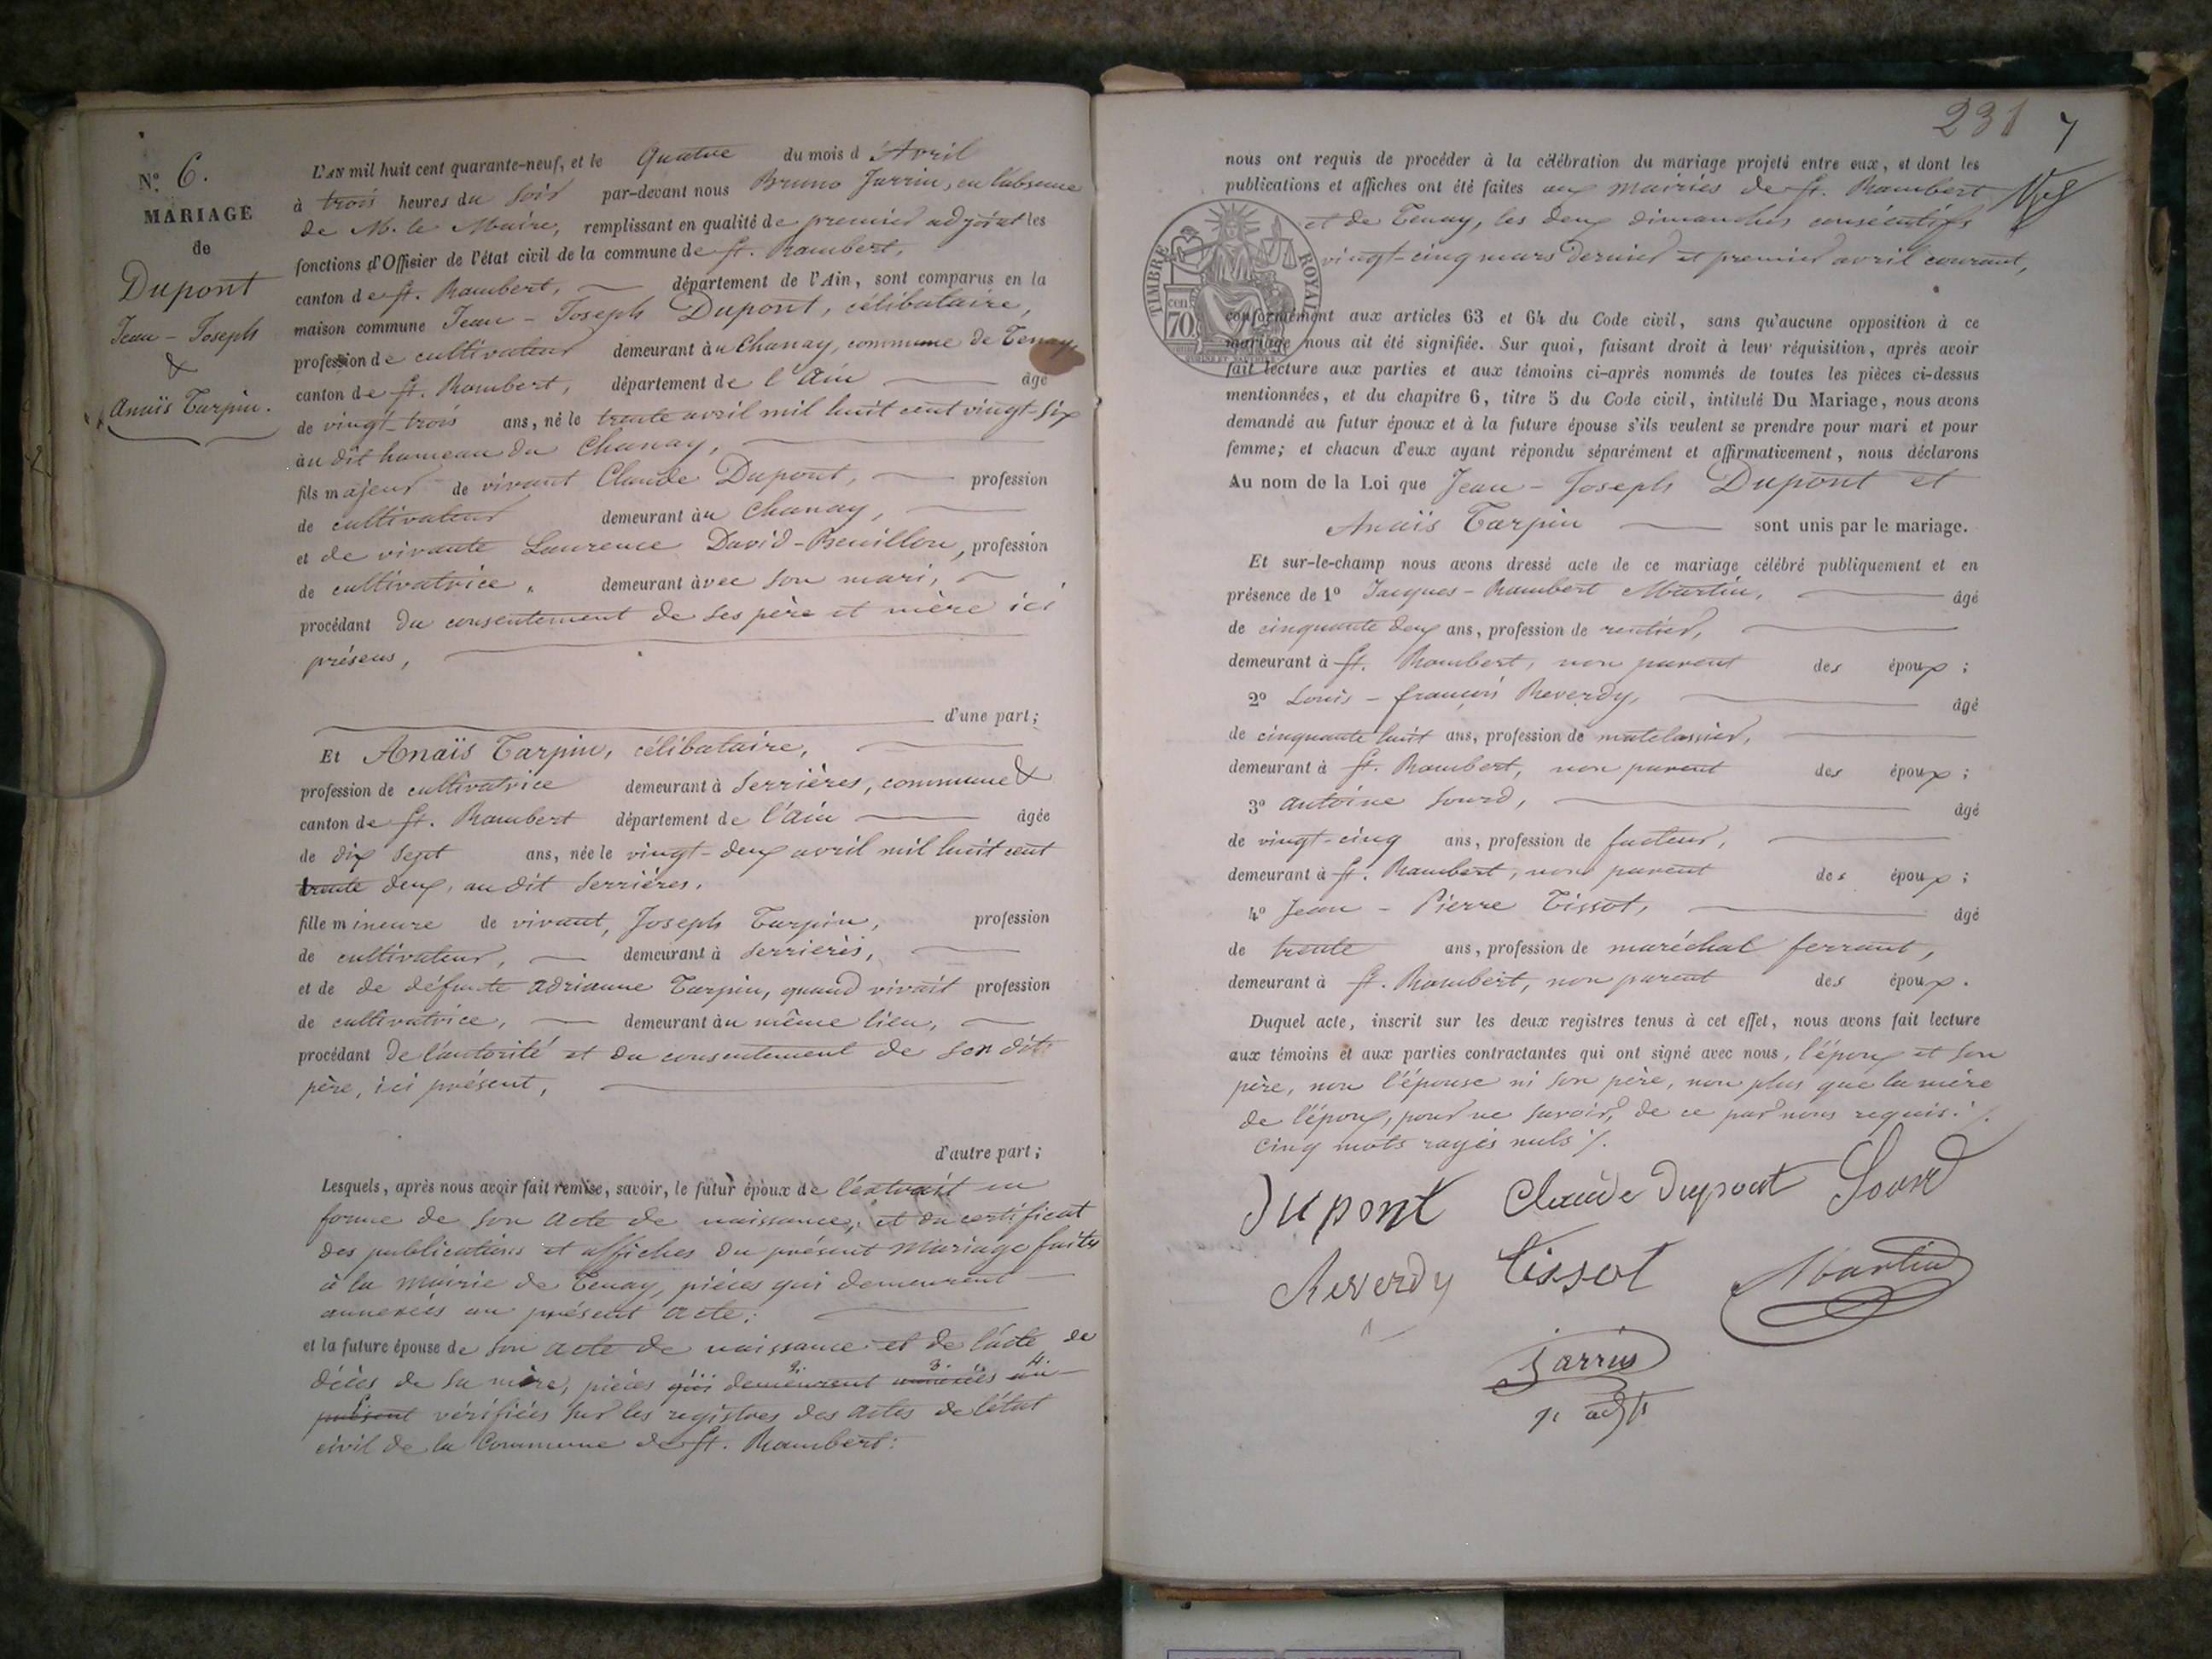 N.o 6.
MARIAGE
de
Dupont
Jean - Joseph
&
Anaïs Tarpin.
L'AN mil huit cent quarante-neuf, et le Quatre du mois d'Avril
à trois heures du soir par-devant nous Bruno Jarrin, en l'absence
de M. le Maire, remplissant en qualité de premier adjoint les
fonctions d'Officier de l'état civil de la commune de St. Rambert,
canton de St. Rambert, département de l'Ain, sont comparus en la
maison commune Jean - Joseph Dupont, célibataire,
profession de cultivateur demeurant àu Chanay, commune de Tenay
canton de St. Rambert, département de l'Ain âgé
de vingt-trois ans, né le trente avril mil huit cent vingt-six
àu dit hameau du Chanay,
fils majeur de vivant Claude Dupont, profession
de cultivateur demeurant àu Chanay,
et de vivante Laurence David-Beuillon, profession
de cultivatrice, demeurant àvec son mari,
procédant du consentement de ses père et mère ici
présens,
d'une part;
Et Anaïs Tarpin, célibataire,
profession de cultivatrice demeurant à Serrières, commune &
canton de St. Rambert département de l'Ain âgée
de dix sept ans, née le vingt-deux avril mil huit cent
trente deux, au dit Serrières.
fille mineure de vivant, Joseph Tarpin, profession
de cultivateur, demeurant à Serrières,
et de de défunte adrianne Tarpin, quand vivait profession
de cultivatrice, demeurant àu même lieu,
procédant de l'autorité et du consentement de son dit
père, ici présent,
d'autre part;
Lesquels, après nous avoir fait remise, savoir, le futur époux de l'extrait en
forme de son acte de naissance, et du certificat
des publications et affiches du présent Mariage faites
à la Mairie de Tenay, pièces qui demeurent
annexées au présent acte;
et la future épouse de son acte de naissance et de l'acte de
décès de sa mère, pièces qui demeurent annexées au
présent vérifiées sur les registres des actes de l'état
civil de la Commune de St. Rambert:
231 7
nous ont requis de procéder à la célébration du mariage projeté entre eux, et dont les
publications et affiches ont été faites aux mairies de St. Rambert
et de Tenay, les deux dimanches consécutifs
vingt-cinq mars dernier et premier avril courant,
TIMBRE ROYAL
cen 70
conformément aux articles 63 et 64 du Code civil, sans qu'aucune opposition à ce
mariage nous ait été signifiée. Sur quoi, faisant droit à leur réquisition, après avoir
fait lecture aux parties et aux témoins ci-après nommés de toutes les pièces ci-dessus
mentionnées, et du chapitre 6, titre 5 du Code civil, intitulé Du Mariage, nous avons
demandé au futur époux et à la future épouse s'ils veulent se prendre pour mari et pour
femme; et chacun d'eux ayant répondu séparément et affirmativement, nous déclarons
Au nom de la Loi que Jean - Joseph Dupont et
Anaïs Tarpin sont unis par le mariage.
Et sur-le-champ nous avons dressé acte de ce mariage célébré publiquement et en
présence de 1o Jacques - Rambert Martin, âgé
de cinquante deux ans, profession de rentier,
demeurant à St. Rambert, non parent des époux;
2o Louis - françois Reverdy, âgé
de cinquante huit ans, profession de matelassier,
demeurant à St. Rambert, non parent des époux;
3o antoine Sourd, âgé
de vingt-cinq ans, profession de facteur,
demeurant à St. Rambert, non parent des époux;
4o Jean - Pierre Tissot, âgé
de trente ans, profession de maréchal ferrant,
demeurant à St. Rambert, non parent des époux.
Duquel acte, inscrit sur les deux registres tenus à cet effet, nous avons fait lecture
aux témoins et aux parties contractantes qui ont signé avec nous, l'époux et son
père, non l'épouse ni son père, non plus que la mère
de l'époux, pour ne savoir, de ce par nous requis.
Cinq mots rayés nuls
Dupont Claude Dupont Sourd
Reverdy Tissot Martin
Jarrin